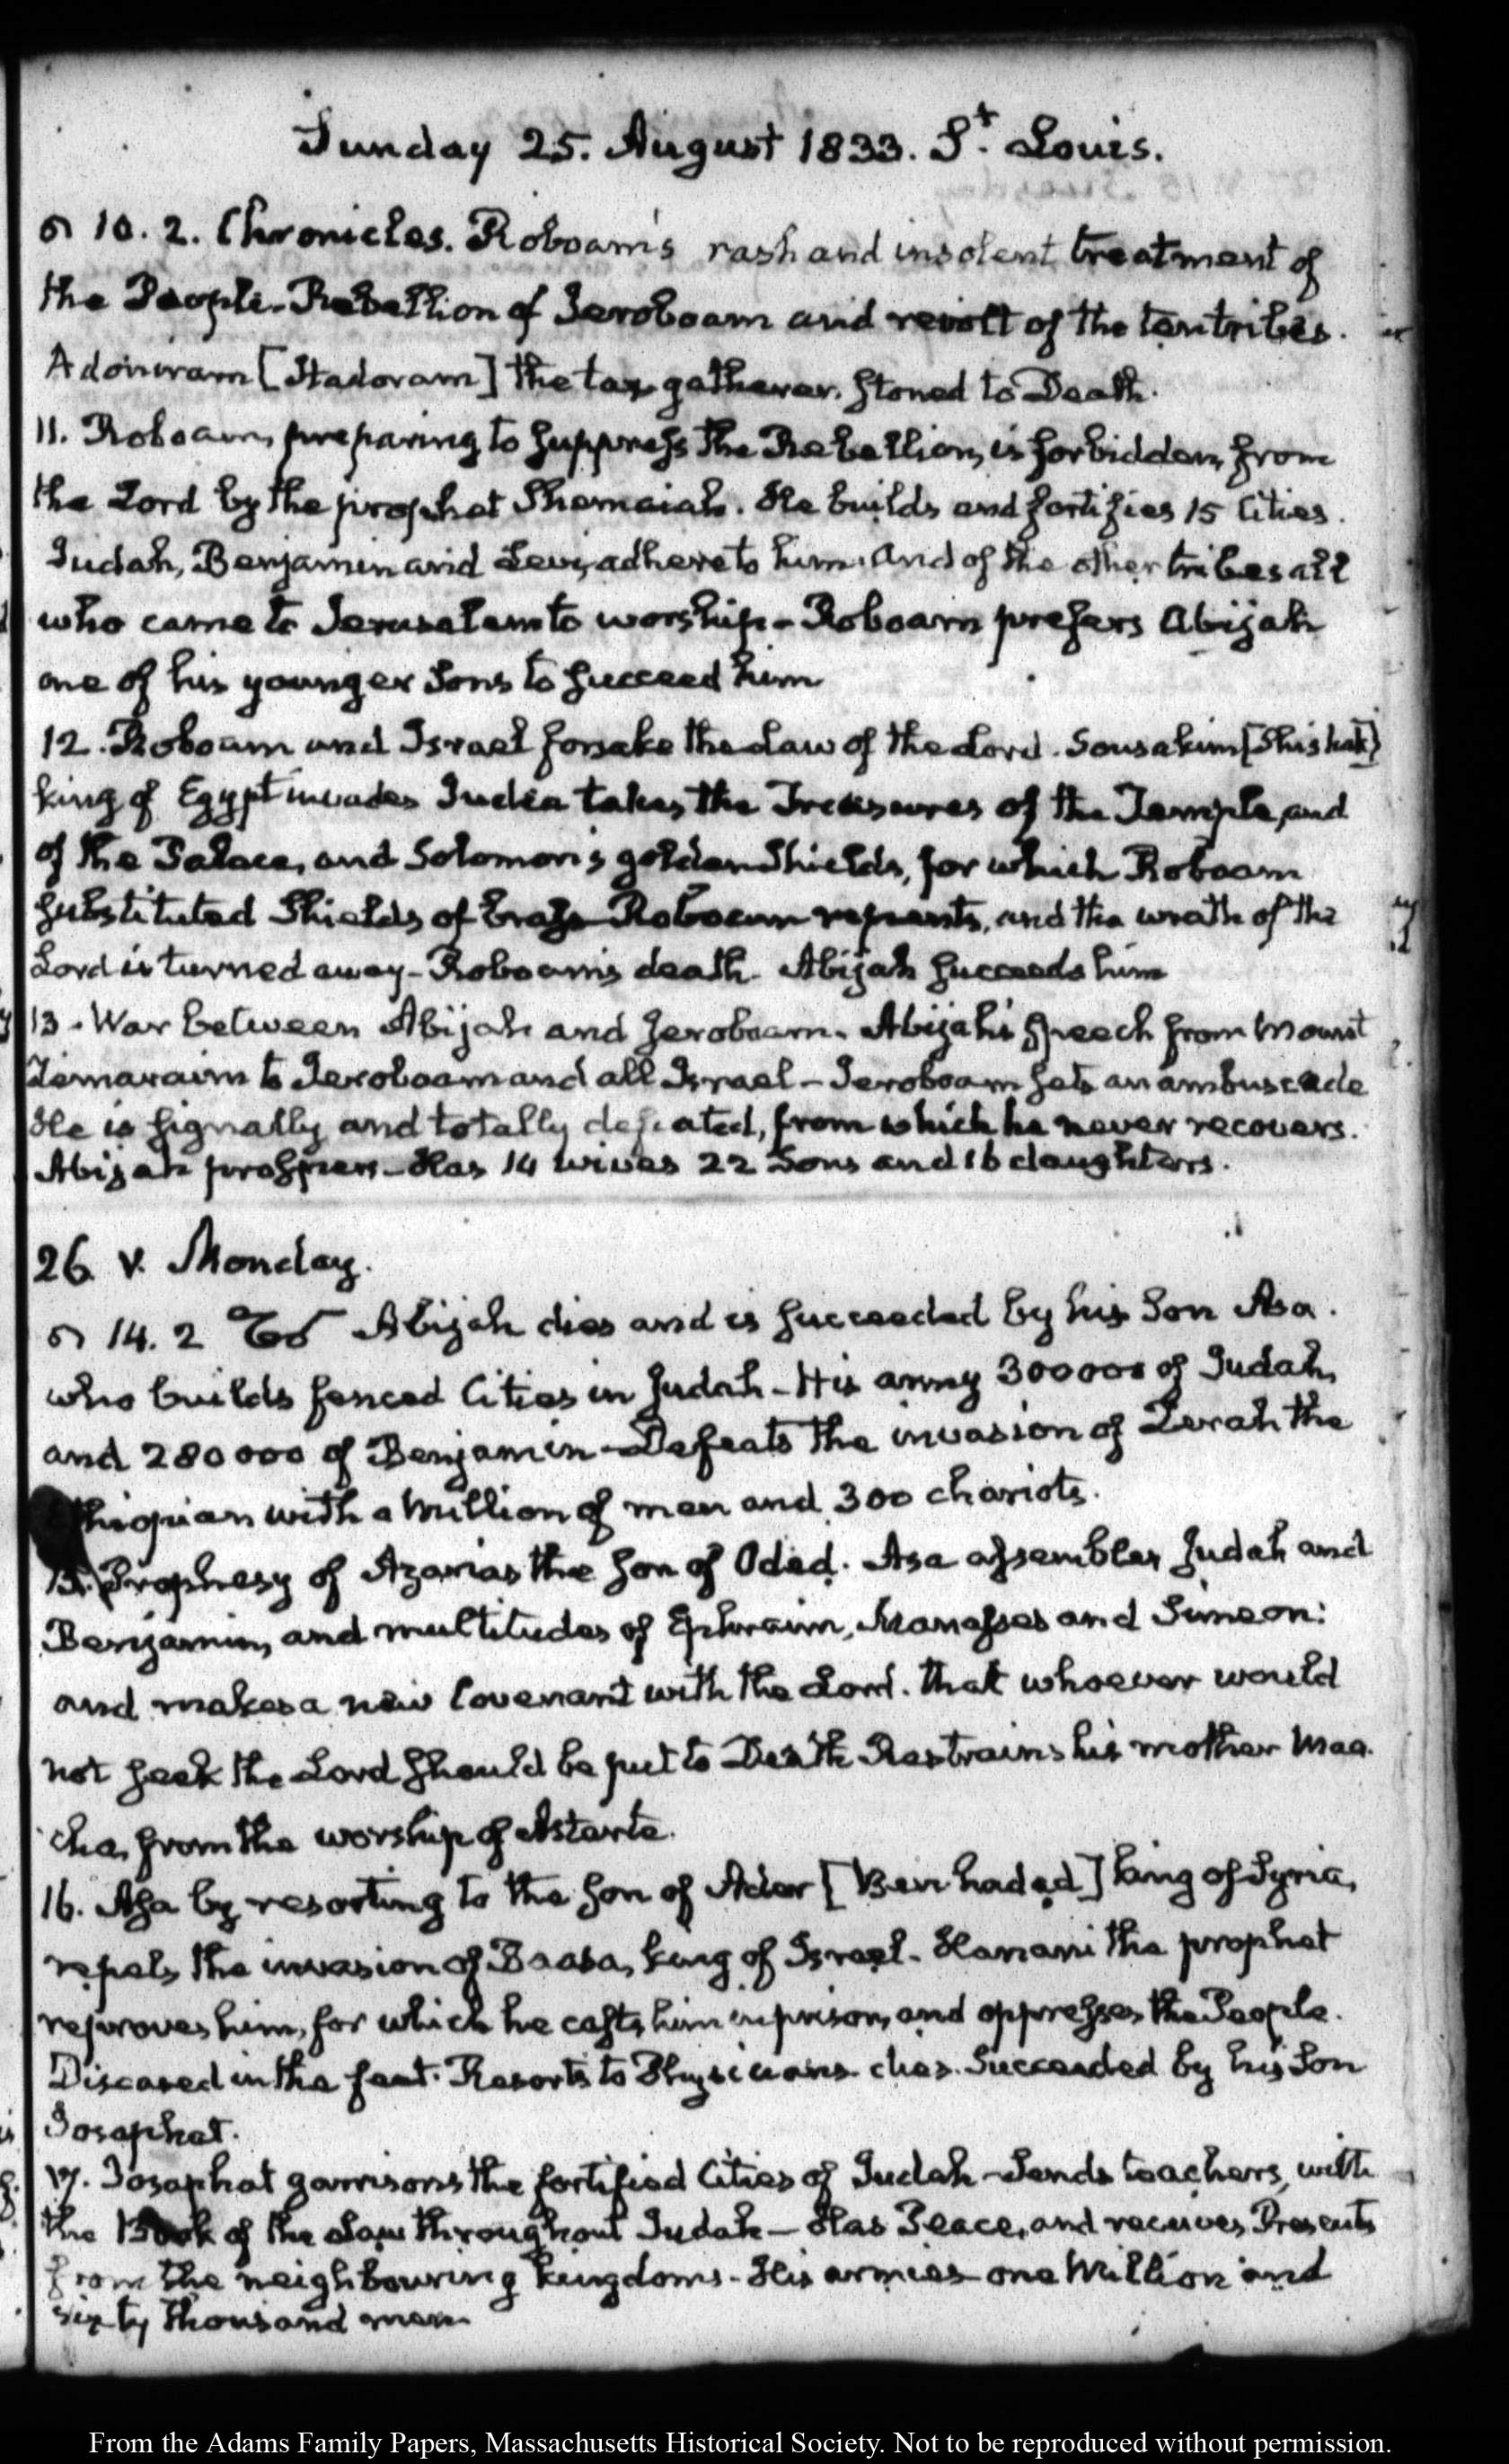 Sunday 25. August 1833. St. Louis.
10. 2. Chronicles. Roboam's rash and insolent treatment of
the People - Rebellion of Jeroboam and revolt of the ten tribes.
Adoniram [Hadoram] the tax gatherer, stoned to Death.
11. Roboam, preparing to suppress the Rebellion, is forbidden, from
the Lord by the prophet Shemaiah. He builds and fortifies 15 Cities.
Judah, Benjamin and Levi, adhere to him. And of the other tribes all
who came to Jerusalem to worship - Roboam prefers Abijah
one of his younger Sons to succeed him
12. Roboam and Israel forsake the Law of the Lord. Sousakim [Shishak]
king of Egypt invades Judea takes the Treasures of the Temple, and
of the Palace, and Solomon's golden Shields, for which Roboam
substituted Shields of brass - Roboam repents, and the wrath of the
Lord is turned away - Roboam's death - Abijah succeeds him
13. War between Abijah and Jeroboam. Abijah's speech from Mount
Zemaraim to Jeroboam and all Israel - Jeroboam sets an ambuscade
He is signally and totally defeated, from which he never recovers.
Abijah prospers - Has 14 wives 22 Sons and 16 daughters.
26. V. Monday.
14. 2 Abijah dies and is succeeded by his Son Asa.
who builds fenced Cities in Judah - His army 300000 of Judah,
and 280000 of Benjamin - Defeats the invasion of Zerah the
thiopian with a Million of men and 300 chariots.
15. Prophesy of Azarias the Son of Oded. Asa assembles Judah and
Benjamin, and multitudes of Ephraim, Manasses and Simeon:
and makes a new Covenant with the Lord. that whoever would
not seek the Lord should be put to Death Restrains his mother Maa-
cha, from the worship of Astarte.
16. Asa by resorting to the Son of Ader [Ben hadad] king of Syria,
repels the invasion of Baasa, king of Israel - Hanani the prophet
reproves him, for which he casts him in prison, and oppresses the People.
Diseased in the feet. Resorts to Physicians - dies. Succeeded by his Son
Josaphat.
17. Josaphat garrisons the fortified Cities of Judah - Sends teachers, with
the Book of the Law throughout Judah - Has Peace, and receives Presents
from the neighbouring kingdoms - His armies one Million and
sixty thousand men
From the Adams Family Papers, Massachusetts Historical Society. Not to be reproduced without permission.